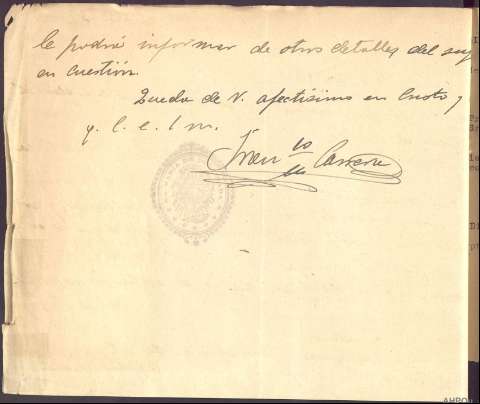 le podrá informar de otros detalles del
en cuestión.
Queda de V. afectísimo en Cristo y
q. l. e. l m.
Franco
AHPOu